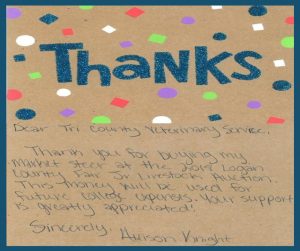 THANKS
Dear Tri County Veterinary Service,
Thank you for buying my
market steer at the 2018 Logan
County Fair Jr Livestock Auction.
This money will be used for
future college expenses. Your support
is greatly appreciated!
Sincerely,
Allison Knight